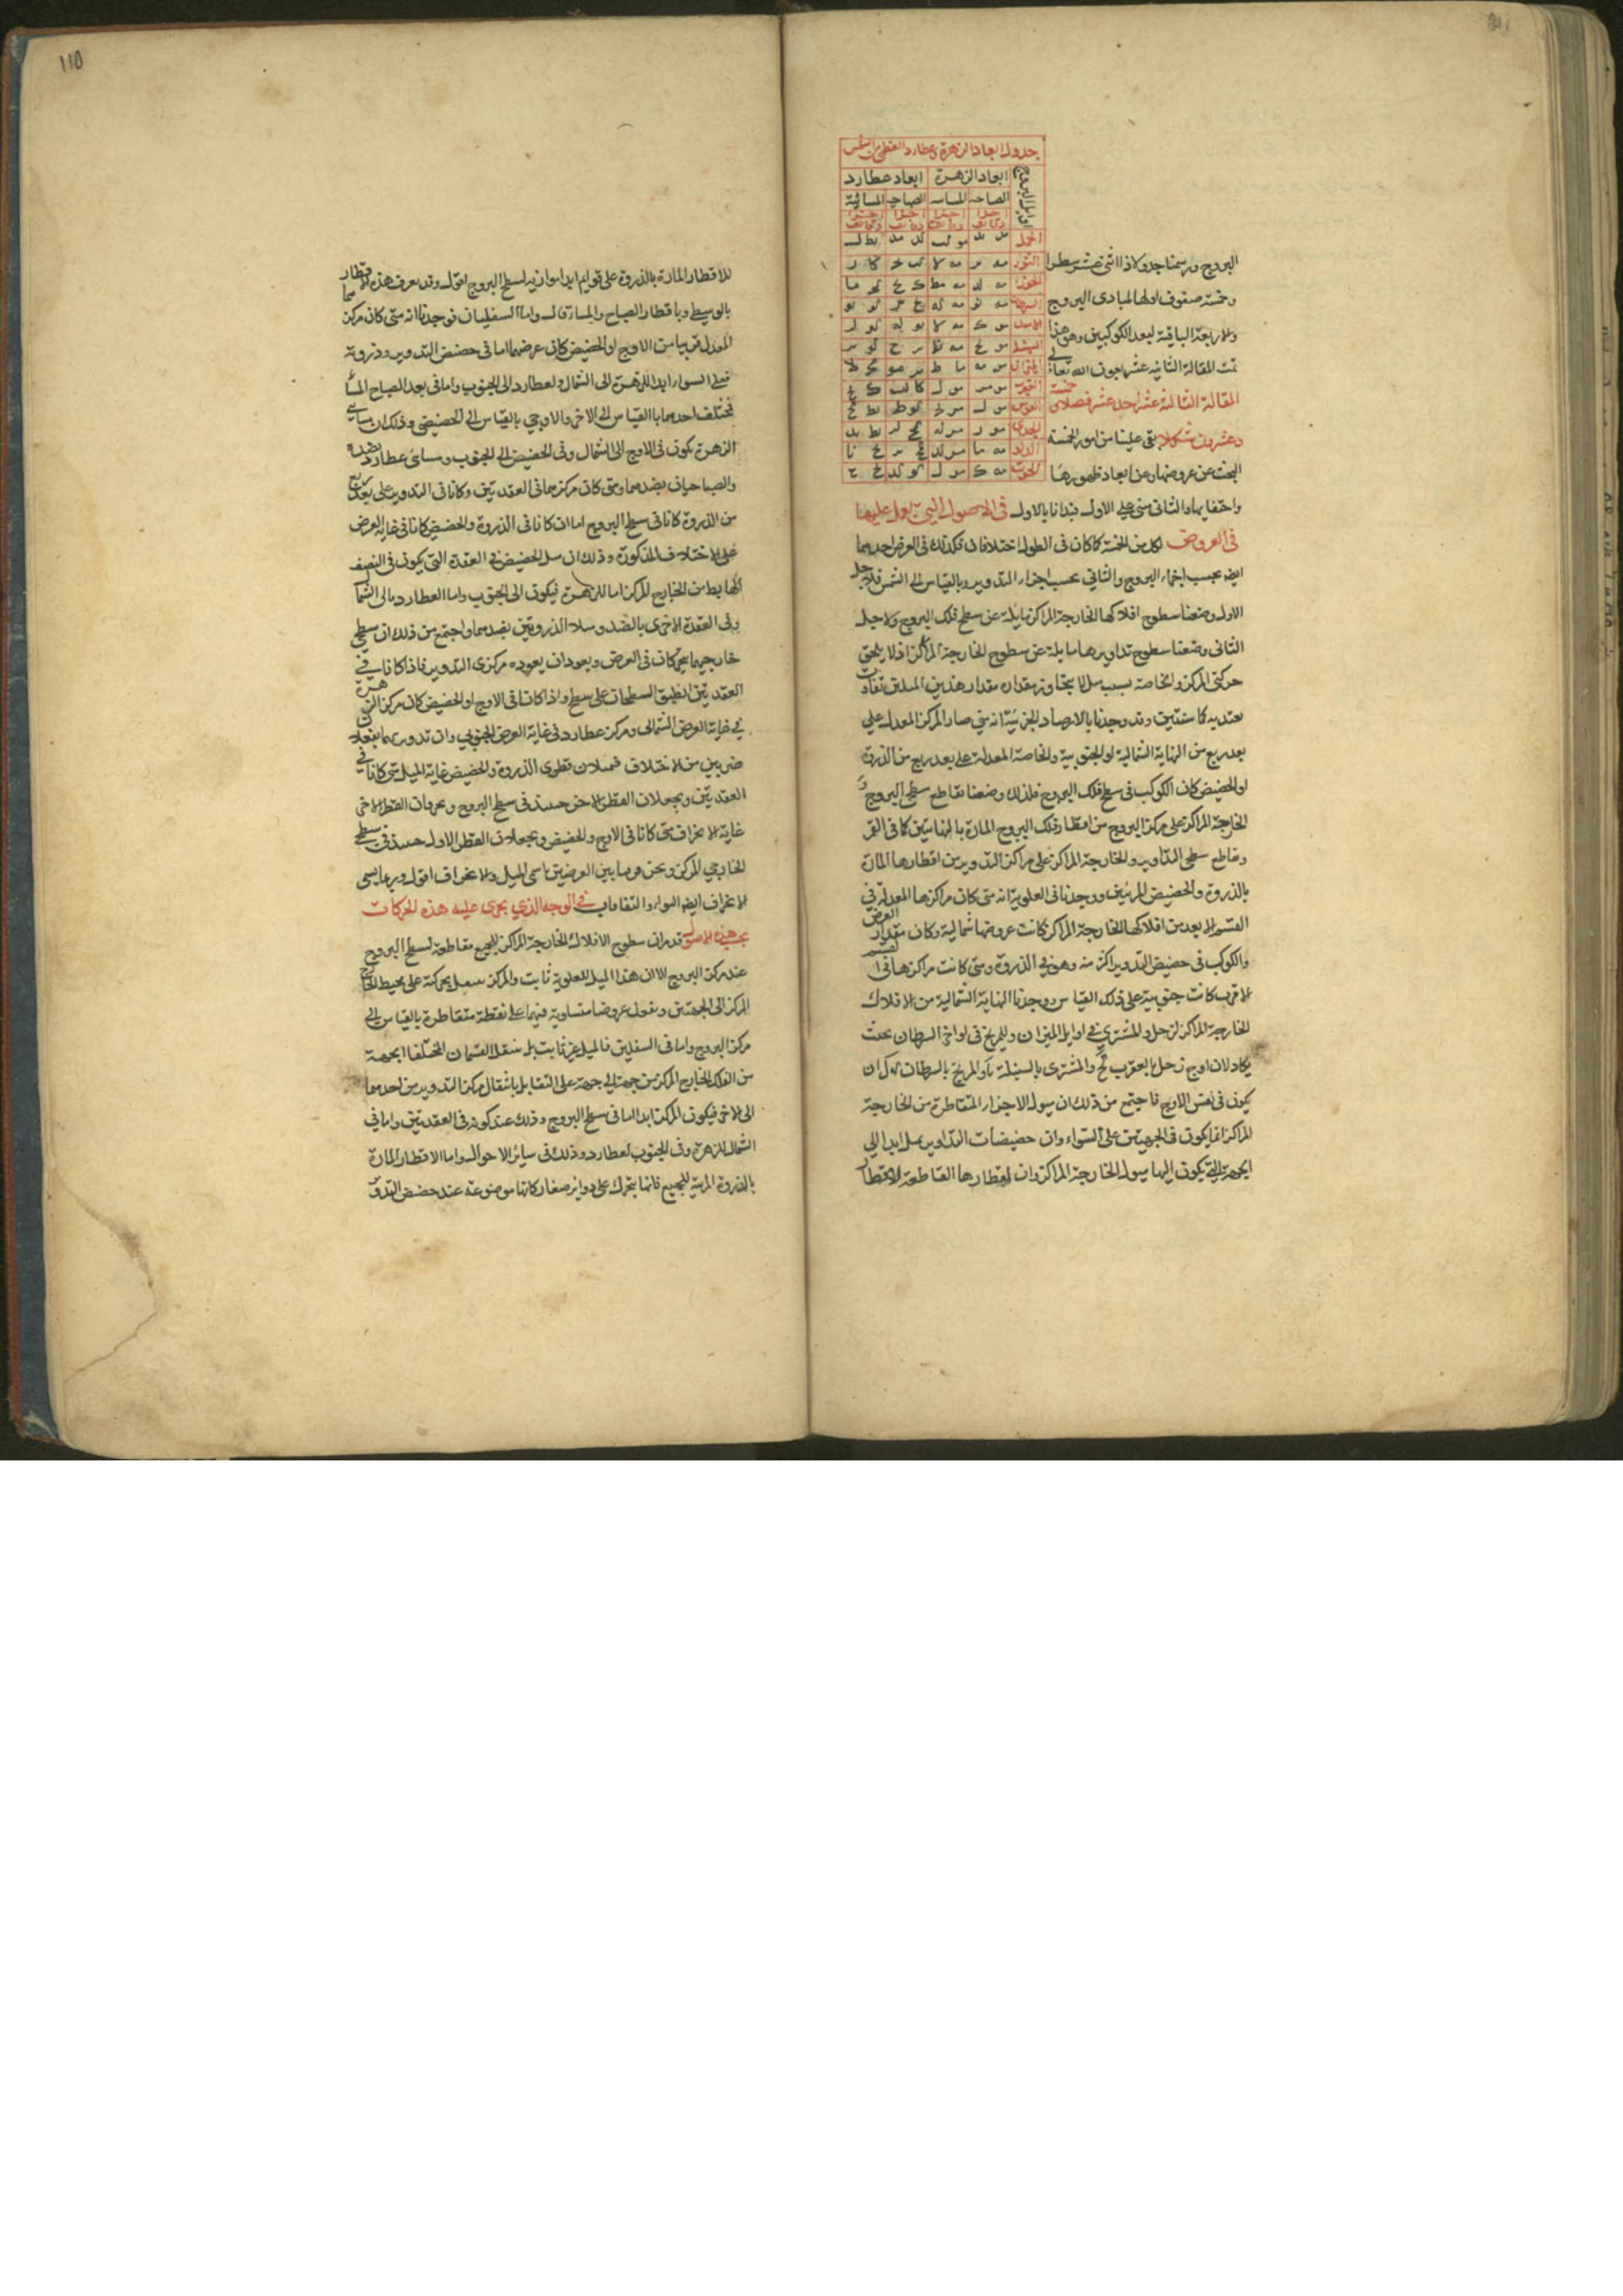 جدول ابعاد الزهرة وعطارد العظمى من الشمس
اوايل البروج
ابعاد الزهرة ابعاد عطارد
الصباحية المسائية الصباحية المسائية
اجزا اجزا اجزا اجزا
دقائق دقائق دقائق دقائق
الحمل
الثور
الجوزا
السرطان
الاسد
السنبلة
الميزان
العقرب
القوس
الجدى
الدلو
الحوت
البروج ورسمنا جدولا ذا اثنى عشر سطرا
وخمسة صفوف اولها لمبادى البروج
والاربعة الباقية لبعد الكوكبين وهو هذا
تمت المقالة الثانية عشر بعون الله تعالى
المقالة الثالثة عشر احد عشر فصلا و خمسة
وعشرون شكلا بقى علينا من امور الخمسة
البحث عن عروضها وعن ابعاد ظهورها
واختفايها والثانى مبنى على الاول فبدانا بالاول فى الاصول التى يعول عليها
فى العروض لكل من الخمسة كما كان فى الطول اختلافان فكذلك فى العرض احدهما
ايضا بحسب اجزاء البروج والثانى بحسب اجزاء التدوير وبالقياس الى الشمس فلاجل
الاول وضعنا سطوح افلاكها الخارجة المراكز مايلة عن سطح فلك البروج ولاجل
الثانى وضعنا سطوح تداويرها مايلة عن سطوح الخارجة المراكز اذ لا يلحق
حركتى المركز والخاصة بسبب ميل لا يتجاوز مقداره مقدار هذين الميلين تفاوت
يعتد به كما سنبين وقد وجدنا بالارصاد الجزئية انه متى صار المركز المعدل على
بعد ربع من النهاية الشمالية او الجنوبية والخاصة المعدلة على بعد ربع من الذروة
او الحضيض كان الكوكب فى سطح فلك البروج فلذلك وضعنا تقاطع سطح البروج و
الخارجة المراكز على مركز البروج من اقطار فلك البروج المارة بالنهايتين كما فى القمر
وتقاطع سطحى التداوير والخارجة المراكز على مراكز التدوير من اقطارها المارة
بالذروة والحضيض المرئيين ووجدنا فى العلوية انه متى كان مراكزها المعدلة فى
القسم الابعد من افلاكها الخارجة المراكز كانت عروضها شمالية وكان مقدار العرض
والكوكب فى حضيض التدوير اكثر منه وهو فى الذروة ومتى كانت مراكزها فى القسم
الاقرب كانت جنوبية على ذلك القياس ووجدنا النهاية الشمالية من الافلاك
الخارجة المراكز لزحل والمشترى فى اوايل الميزان وللمريخ فى اواخر السرطان بحيث
يكاد لان اوج زحل بالعقرب والمشترى بالسنبلة والمريخ بالسرطان ان
يكون فى نفس الاوج فاجتمع من ذلك ان ميول الاجزاء المتقاطرة من الخارجة
المراكز انما يكون فى الجهتين على السواء وان حضيضات التداوير يميل ابدا الى
الجهة التى يكون اليها ميول الخارجة المراكز وان اقطارها القاطعة للاقطار
١١٥
للاقطار المارة بالذروة على قوايم ابدا موازية لسطح البروج اقول وقد يعرف هذه الاقطار
بالوسيط وباقطار الصباح والمساء قال واما السفليان فوجدنا انه متى كان مركزهما
المعدل قريبا من الاوج او الحضيض كان عرضهما اما فى حضيض التدوير وذروته
فعلى السواء ابدا للزهرة الى الشمال ولعطارد الى الجنوب واما فى بعد الصباح المساء
فمختلف احدهما بالقياس الى الاخر والاوجى بالقياس الى الحضيضى وذلك ان مسائى
الزهرة يكون فى الاوج الى الشمال وفى الحضيض الى الجنوب ومسائى عطارد بضده
والصباحيان بضدهما ومتى كان مركزهما فى العقدتين وكانا فى التدوير على بعد ربع
من الذروة كانا فى سطح البروج اما ان كانا فى الذروة والحضيض كانا فى غاية العرض
على الاختلاف المذكور وذلك ان ميل الحضيض فى العقدة التى يكون فى النصف
الهابط من الخارج المركز اما للزهرة فيكون الى الجنوب واما لعطارد فالى الشمال
وفى العقدة الاخرى بالضد وميلا الذروتين بضدهما واجتمع من ذلك ان سطحى
خارجيهما يتحركان فى العرض ويعودان بعوده مركزى التدوير فاذا كانا فى
العقدتين انطبق السطحان على سطح واذا كانا فى الاوج او الحضيض كان مركز الزهرة
فى غاية العرض الشمالى ومركز عطارد فى غاية العرض الجنوبى وان تدويريهما يفعلان
ضربين من الاختلاف فيميلان قطرى الذروة والحضيض غاية الميل متى كانا فى
العقدتين ويجعلان القطر الاخر حينئذ فى سطح البروج ويحرفان القطر الاخر
غاية الانحراف متى كانا فى الاوج والحضيض ويجعلان القطر الاول حينئذ فى سطح
الخارجى المركز ونحن نسمى هذين العرضين باسمى الميل والانحراف اقول وربما يسمى
الانحراف ايضا التواء والتفافا فى الوجه الذى يجرى عليه هذه الحركات
بحسب هذه الاصول قد مر ان سطوح الافلاك الخارجة المراكز للجميع مقاطعة لسطح البروج
عند مركز البروج الا ان هذا الميل للعلوية ثابت والمركز ينتقل بحركته على محيط الخارج
المركز الى الجهتين ويفعل عروضا متساوية فيهما على نقطة متقاطرة بالقياس الى
مركز البروج واما فى السفليين فالميل غير ثابت بل ينتقل القسمان المختلفا الجهة
من الفلك الخارج المركز من جهة الى جهة على التقابل بانتقال مركز التدوير من احدهما
الى الاخر فيكون المركز ابدا اما فى سطح البروج وذلك عند كونه فى العقدتين واما فى
الشمال للزهرة وفى الجنوب لعطارد وذلك فى ساير الاحوال واما الاقطار المارة
بالذروة المرئية للجميع فانها يتحرك على دواير صغار كانها موضوعة عند حضيض التدوير